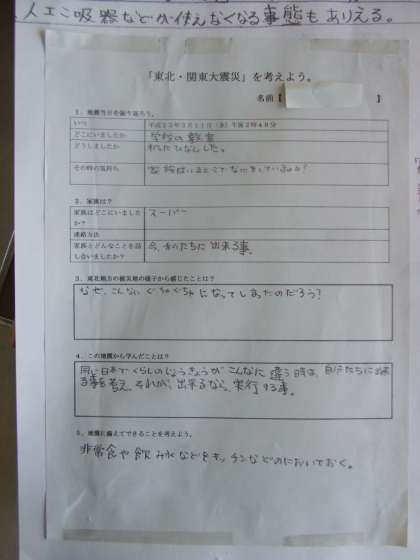 人工呼吸器などが使えなくなる事態もありえる。
「東北・関東大震災」を考えよう。
名前【 】
1．地震当日を振り返ろう。
いつ 平成23年3月11日（金）午後2時46分
どこにいましたか 学校の教室
どうしましたか
その時の気持ち
2．家族は？
家族はどこにいましたか？ スーパー
連絡方法
家族とどんなことを話し合いましたか？ 今、私たちに出来る事。
3．東北地方の被災地の様子から感じたことは？
なぜ、こんなにぐちゃぐちゃになってしまったのだろう？
4．この地震から学んだことは？
同じ日本でくらしのじょうきょうがこんなに違う時は、自分たちに出来
る事を考え、それが、出来るなら、実行する事。
5．地震に備えてできることを考えよう。
非常食や飲み水などをキッチンなどのにおいておく。